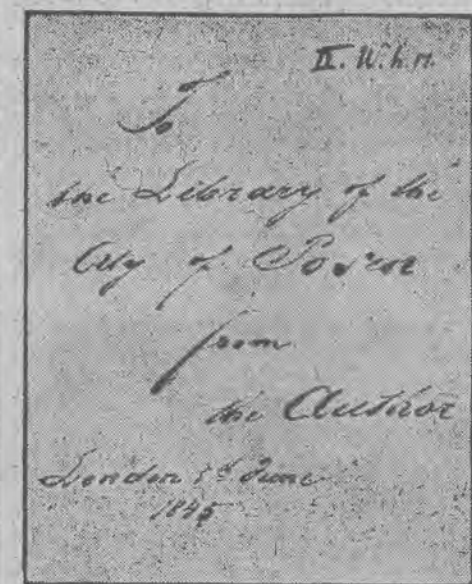 To
the Library of the
City of Posen
from
the Author
London 1st June
1845